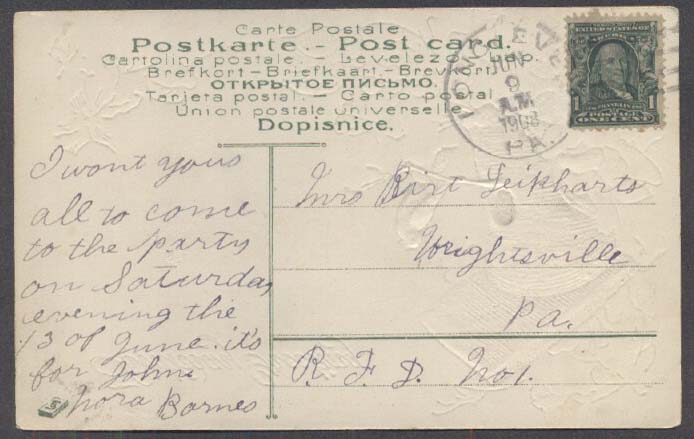 Carte Postale
Postkarte. - Post card.
Cartolina postale. - Levelező-Lap.
Brefkort-Briefkaart-Brevkort
ОТКРЫТОЕ ПИСЬМО.
Tarjeta postal. - Carto postal
Union postale universelle
Dopisnice.
JUN
9
A.M
1908
PA.
UNITED STATES OF AMERICA
1 1
FRANKLIN
POSTAGE
ONE CENT
I wont yous
all to come
to the party
on Saturday
evening the
13 of June. it's
for John.
Nora Barnes
Mrs Birt Leikharts
Wrightsville
Pa.
R. F. D. No 1.